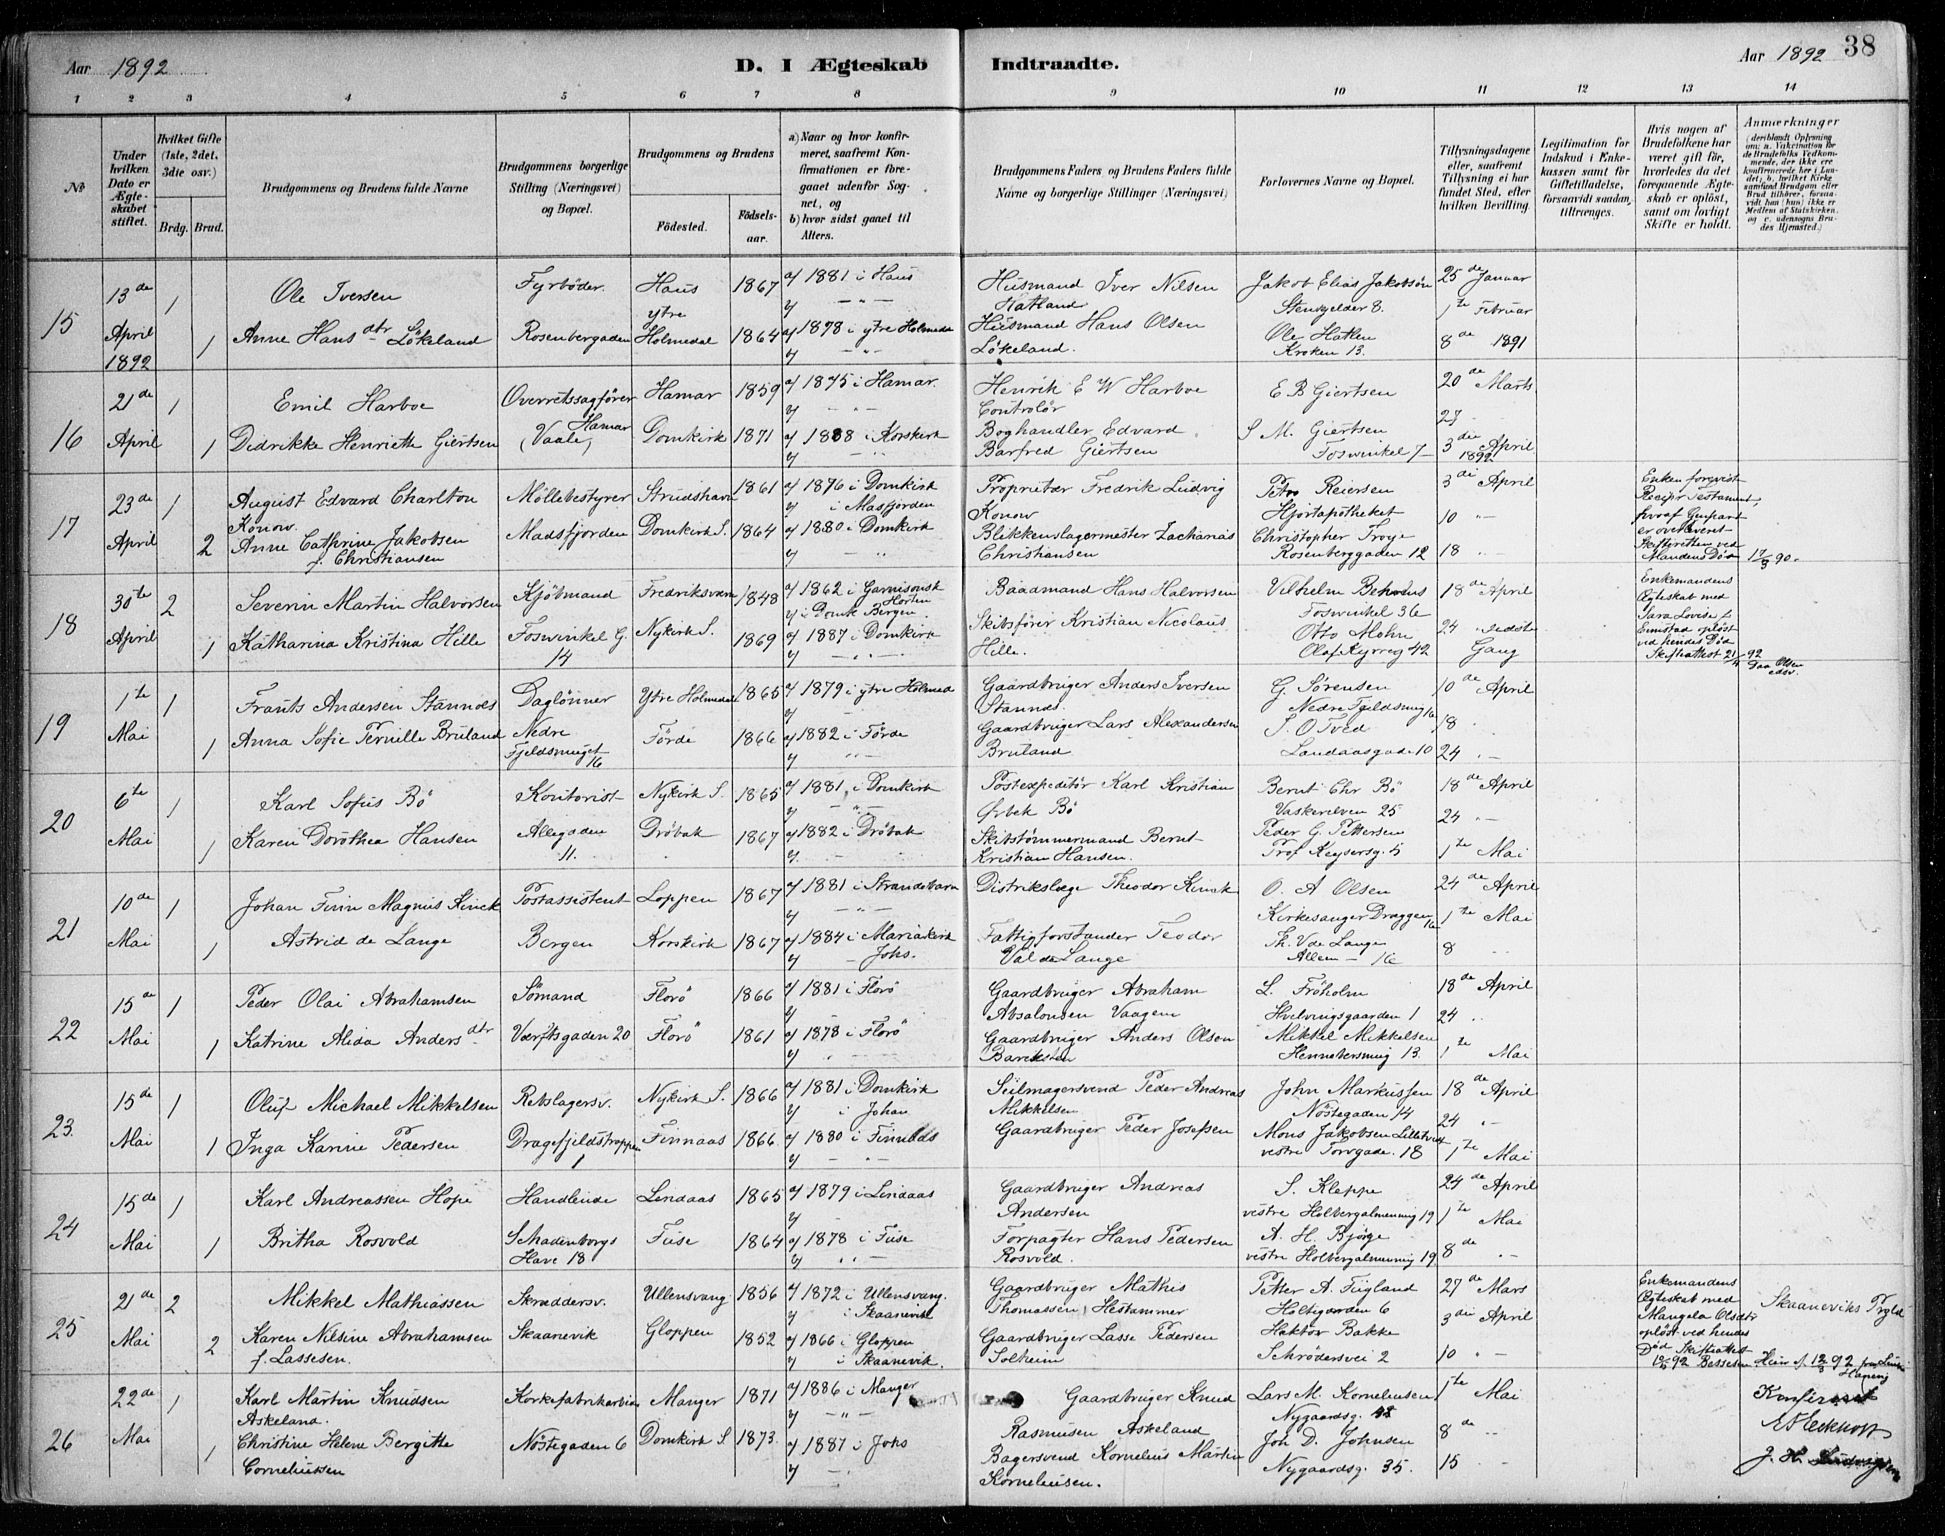 Aar 1892
D. I Ægteskab Indtraadte.
Aar 1892 38
1 2 3 4 5 6 7 8 9 10 11 12 13 14
No
Under hvilken Dato er Ægteskabet stiftet.
Hvilket Gifte (1ste, 2det, 3die osv.)
Brdg. Brud.
Brudgommens og Brudens fulde Navne
Brudgommens borgerlige Stilling (Næringsvei) og Bopæl.
Brudgommens og Brudens
Fødested.
Fødselsaar.
a) Naar og hvor konfirmeret, saafremt Konfirmationen er foregaaet udenfor Sognet, og
b) hvor sidst gaaet til Alters.
Brudgommens Faders og Brudens Faders fulde Navne og borgerlige Stillinger (Næringsvei)
Forlovernes Navne og Bopæl.
Tillysningsdagene eller, saafremt Tillysning ei har fundet Sted, efter hvilken Bevilling.
Legitimation for Indskud i Enkekassen samt for Giftetilladelse, forsaavidt saadan tiltrænges.
Hvis nogen af Brudefolkene har været gift før, hvorledes da det foregaaende Ægteskab er opløst, samt om lovligt Skifte er holdt.
Anmærkninger
(deriblandt Oplysning om: a. Vakcination for de Brudefolks Vedkommende, der ikke ere konfirmerede her i Landet, b. hvilket Kirkesamfund Brudgom eller Brud tilhører, forsaavidt han (hun) ikke er Medlem af Statskirken, og c. udensogns Brudes Hjemsted.)
15 13de April 1892 1 Ole Iversen Fyrbøder Haus 1867 a) 1881 i Haus b) — " — Husmand Iver Nilsen Hatland Jakob Elias Jakobsøn Stenkjelder 8. 25de Januar 1te Februar
1 Anne Hansdtr Lökeland Rosenbergaden ytre Holmedal 1864 a) 1878 i ytre Holmeda b) — " — Husmand Hans Olsen Lökeland. Ole Hatlen Kroken 13. 8de 1891
16 21de April 1 Emil Harboe Overretssagfører Hamar 1859 a) 1875 i Hamar. b) — " — Henrik E W Harboe Controlör E B Giertsen 20de Marts 27 -
1 Didrikke Henriette Giertsen Hamar (Vaale) Domkirk 1871 a) 1888 i Korskirk b) — " — Boghandler Edvard Barfred Giertsen S. M. Giertsen Foswinkel 7 3die April 1892
17 23de April 1 August Edvard Charlton Konow. Møllebestyrer Strudshavn 1861 a) 1876 i Domkirk b) i Masfjorden Proprietær Fredrik Ludvig Konow Peter Reiersen Hjortapotheket 3di April 10 " -
2 Anne Cathrine Jakobsen f. Christiansen Madsfjorden Domkirk S. 1864 a) 1880 i Domkirk b) — " Blikkenslagermester Zacharias Christiansen Christopher Troye Rosenberggaden 12 18 " -
Enken forevist Recipr Testament, hvoraf Genpart er overleveret Skifteretten ved Mandens Død 17/3 90.
18 30te April 2 Severin Martin Halvorsen Kjöbmand Fredriksværn 1848 a) 1862 i Garnisonsk Horten b) i Domk Bergen Baadmand Hans Halvorsen Vilhelm Behrens Foswinkel 36 18de April
1 Katharina Kristina Hille Foswinkel G. 14 Nykirk S. 1869 a) 1887 i Domkirk b) — " — Skibsfører Kristian Nicolaus Hille. Otto Mohn Olaf Kyrreg 42 24 sidste Gang
Enkemandens Ægteskab med Sara Lovise f. Eimstad opløst ved hendes Død Skifteattest 21/4 92
19 1te Mai 1 Frants Andersen Stannes Daglønner Ytre Holmedal 1865 a) 1879 i ytre Holmeda b) Gaardbruger Anders Iversen Stannes. G. Sørensen Nedre Fjeldsmug 16 10de April 18 -
1 Anna Sofie Pernille Bruland Nedre Fjeldsmuget 16 Förde 1866 a) 1882 i Förde b) " — Gaardbruger Lars Alexandersen Bruland S. O Tved Landaasgade 10 24 " -
20 6te Mai 1 Karl Sofus Bö Kontorist Nykirk S. 1865 a) 1881 i Domkirk b) — " — Postexpeditör Karl Kristian Ørbek Bö Bernt Chr Bö Vaskerelven 25 18de April 24 " -
1 Karen Dorothea Hansen Allegaden 11. Dröbak 1867 a) 1882 i Dröbak b) — Skibstømmermand Bernt Kristian Hansen. Peder G. Pettersen Prof Keysersg. 5 1te Mai
21 10de Mai 1 Johan Finn Magnus Kinck Postassistent Loppen 1867 a) 1881 i Strandebarm b) — " — Distrikslæge Theodor Kinck O. A Olsen Kirkesanger Dræggen 16 24de April 1te Mai
1 Astrid de Lange Bergen Korskirk 1867 a) 1884 i Mariakirk b) — Johs. Fattigforstander Teodor Val de Lange Th. V de Lange Alleen — 16 8 " -
22 15de Mai 1 Peder Olai Abrahamsen Sömand Florö 1866 a) 1881 i Florö b) Gaardbruger Abraham Absalonsen Vaagen L. Fröholm Hvelvingsgaarden 1 18de April 24 " -
1 Katrine Alida Andersdtr Værftsgaden 20 Florö 1861 a) 1878 i Florö b) " Gaardbruger Anders Olson Barcksten Mikkel Mikkelsen Hennebersmug 13. 1te Mai
23. 15de Mai 1 Oluf Michael Mikkelsen Rebslagersv. Nykirk S. 1866 a) 1881 i Domkirk b) i Johan Seilmagersvend Peder Andreas Mikkelsen John Markussen Nöstegaden 14 18de April 24 " -
1 Inga Karine Pedersen Dragefjeldstrappen 1 Finnaas 1866 a) 1880 i Finnaas b) — " — Gaardbruger Peder Josefsen Mons Jakobsen Lilletvedt vestre Torvgade. 18 1te Mai
24 15de Mai 1 Karl Andreassen Hope Handlende Lindaas 1865 a) 1879 i Lindaas b) Gaardbruger Andreas Andersen S. Kleppe vestre Holbergalmenning 19 24de April 1te Mai
1 Britha Rosvold Schadenborgs Have 18 Fuse 1864 a) 1878 i Fuse b) " — Forpagter Hans Pedersen Rosvold. A. H. Bjørge vestre Holbergalmenning 19 8de " -
25 21de Mai 2 Mikkel Mathiassen Skræddersv. Ullensvang 1856 a) 1872 i Ullensvang. b) i Skaanevik Gaardbruger Mathis Thomassen Hestammer Petter A. Tugland Holtigaarden 6 27de Mars 3die April
2 Karen Nilsine Abrahamsen f. Lassesen. Skaanevik Gloppen 1852 a) 1866 i Gloppen b) i Skaanevik. Gaardbruger Lasse Pedersen Solheim Haktor Bakke Schrödersvei 2 10 " -
Enkemandens Ægteskab med Mangela Olsdtr opløst ved hendes Död Skifteattest
Skaaneviks Prgld
26 22de Mai 1 Karl Martin Knudsen Askeland. Korkefabrikarbeider Manger 1871 a) 1886 i Manger b) — " — Gaardbruger Knud Rasmusen Askeland Lars M. Korneliusen Nygaardsg. 48 1te Mai 8de -
1 Christine Helene Bergitte Corneliussen Nöstegaden 6 Domkirk S 1873. a) 1887 i Johs b) — Bagersvend Kornelius Martin Korneliusen. Joh D. Johnsen Nygaardsg. 35. 15 -